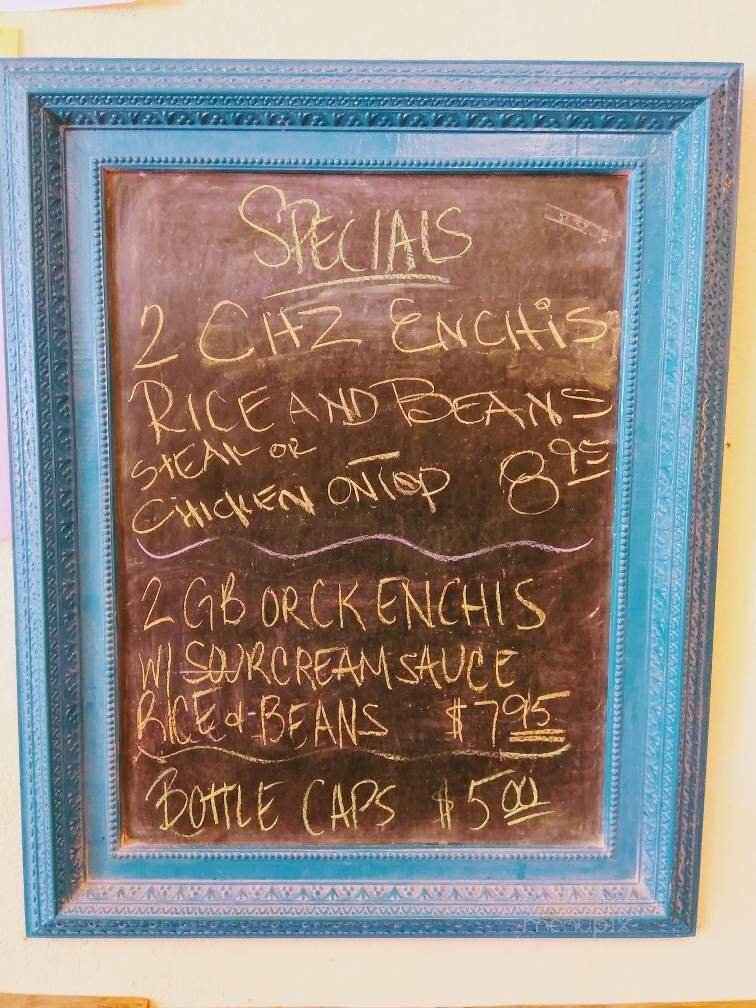 SPECIALS
2 CHZ ENCHiS
RICE AND BEANS
STEAK OR
CHICKEN ON TOP 8 95
2 GB OR CK ENCHIS
W/ SOUR CREAM SAUCE
RICE & BEANS $7 95
BOTTLE CAPS $5 00
menupix